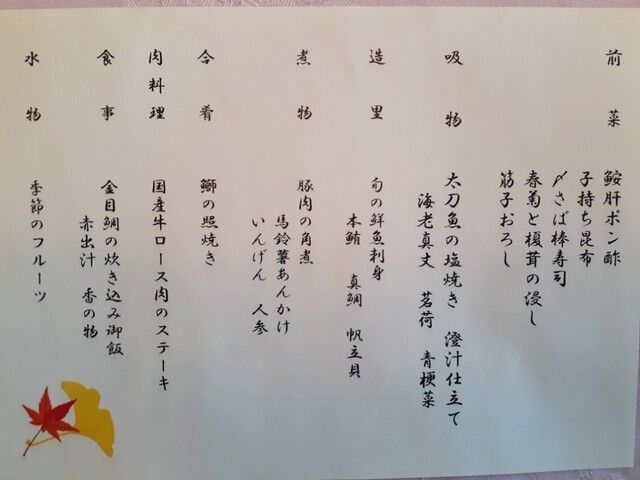 前菜
鮟肝ポン酢
子持ち昆布
〆さば棒寿司
春菊と榎茸の浸し
筋子おろし
吸物
太刀魚の塩焼き 澄汁仕立て
海老真丈 茗荷 青梗菜
造里
旬の鮮魚刺身
本鮪 真鯛 帆立貝
煮物
豚肉の角煮
馬鈴薯あんかけ
いんげん 人参
合肴
鰤の照焼き
肉料理
国産牛ロース肉のステーキ
食事
金目鯛の炊き込み御飯
赤出汁 香の物
水物
季節のフルーツ